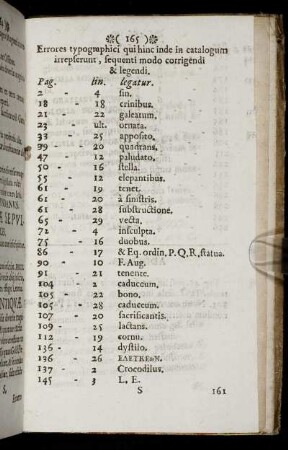 ( 165 )
Errores typographici qui hinc inde in catalogum
irrepserunt, sequenti modo corrigendi
& legendi.
Pag. lin. legatur.
2 - 4 sin.
18 - 18 crinibus.
21 - 22 galeatum.
23 - ult. ornata.
33 - 25 apposito.
39 - 20 quadrans.
47 - 12 paludato.
50 - 16 stella.
55 - 12 elepantibus.
61 - 19 tenet.
61 - 20 à sinistris.
61 - 28 substructione.
65 - 29 vecta.
72 - 4 insculpta.
75 - 16 duobus.
86 - 17 & Eq. ordin. P. Q. R. statua.
90 - 10 F. Aug.
91 - 21 tenente.
104 - 2 caduceum.
105 - 22 bono.
105 - 28 caduceum.
107 - 20 sacrificantis.
109 - 25 lactans.
112 - 19 cornu.
136 - 14 dystilo.
136 - 26
137 - 2 Crocodilus.
145 - 3 L. E.
S 161